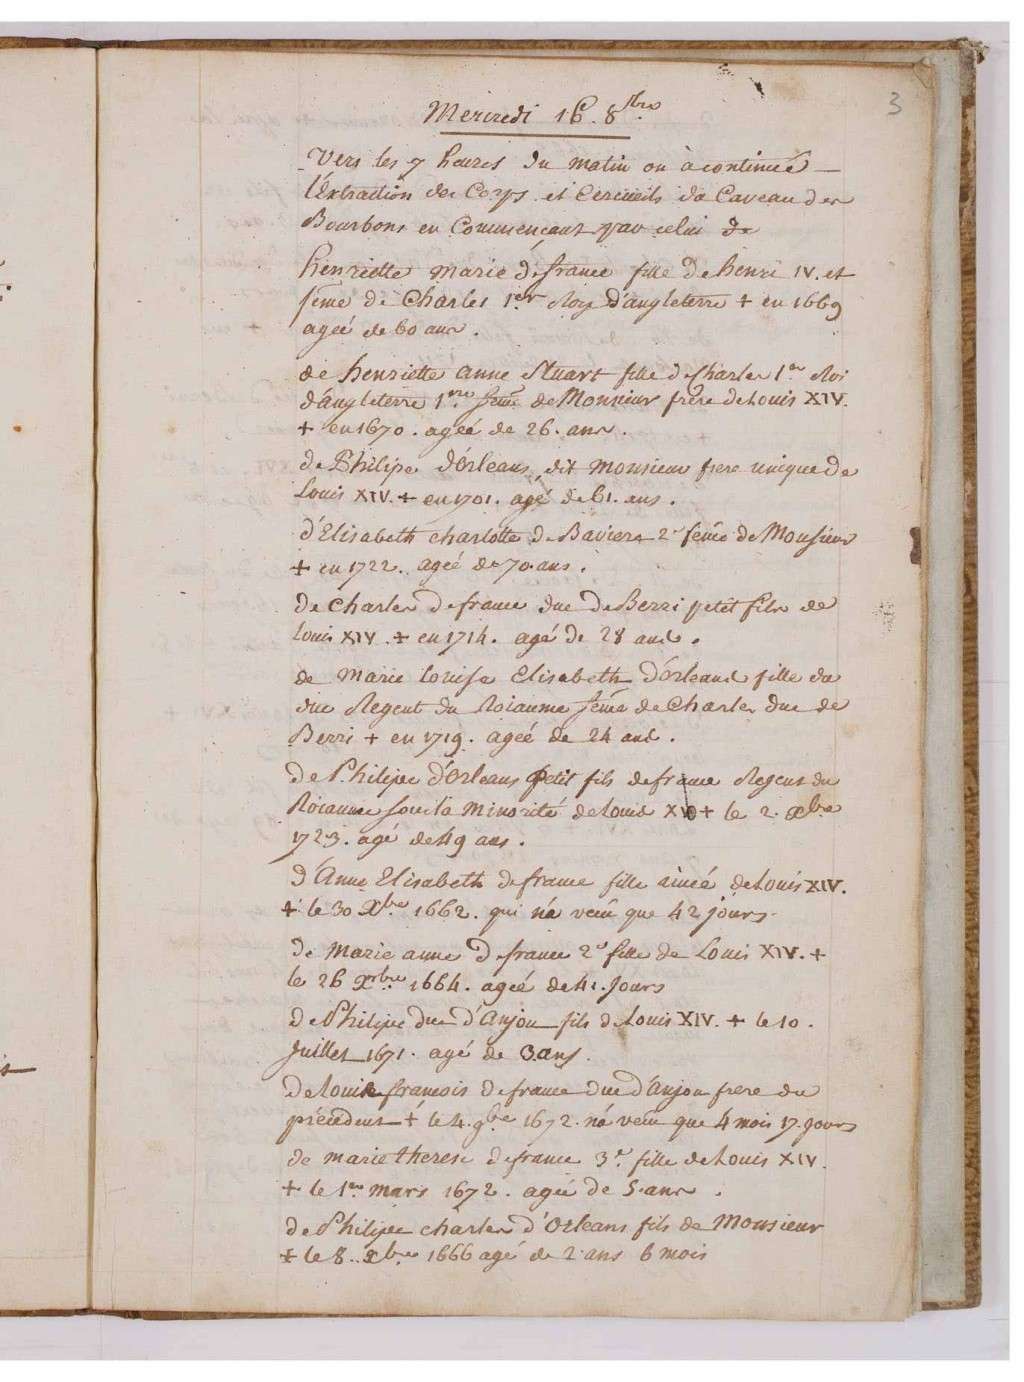 3
Mercredi 16. 8bre.
Vers les 7 heures du matin on à continué
l'éxtraction des Corps et Cercueils du Caveau des
Bourbons en Commençant par celui de
henriette marie de france fille de henri IV. et
feme de Charles 1er Roy d'angleterre + en 1669
ageé de 60 ans.
de henriette anne Stuart fille de Charles 1er Roi
d'angleterre 1ere feme de Monsieur frere de Louis XIV.
+ en 1670. ageé de 26. ans.
de Philipe d'Orleans, dit monsieur frere unique de
Louis XIV. + en 1701. agé de 61. ans.
d'Elisabeth charlotte de Baviere 2e feme de Monsieur
+ en 1722. ageé de 70. ans.
de Charles de france duc de Berri petit fils de
Louis XIV. + en 1714. agé de 28 ans.
de marie louise Elisabeth d'Orleans fille du
duc Regent du Roiaume feme de Charles duc de
Berri + en 1719. ageé de 24 ans.
de Philipe d'Orleans Petit fils de france Regent du
Roiaume sous la minorité de Louis XV + le 2. Xbre
1723. agé de 49 ans.
d'Anne Elisabeth de france fille ainée de Louis XIV.
+ le 30 Xbre 1662. qui n'a vecu que 42 jours.
de marie anne de france 2e fille de Louis XIV. +
le 26 Xrbre 1664. ageé de 41. Jours
de Philipe duc d'Anjou fils de Louis XIV. + le 10.
Juillet 1671. agé de 3 ans.
de Louis francois de france duc d'Anjou frere du
précedent + le 4. 9bre 1672. n'a vecu que 4 mois 17. jours
de marie therese de france 3e fille de Louis XIV.
+ le 1er mars 1672. ageé de 5. ans.
de Philipe charles d'Orleans fils de Monsieur
+ le 8. Xbre 1666 agé de 2 ans 6 mois